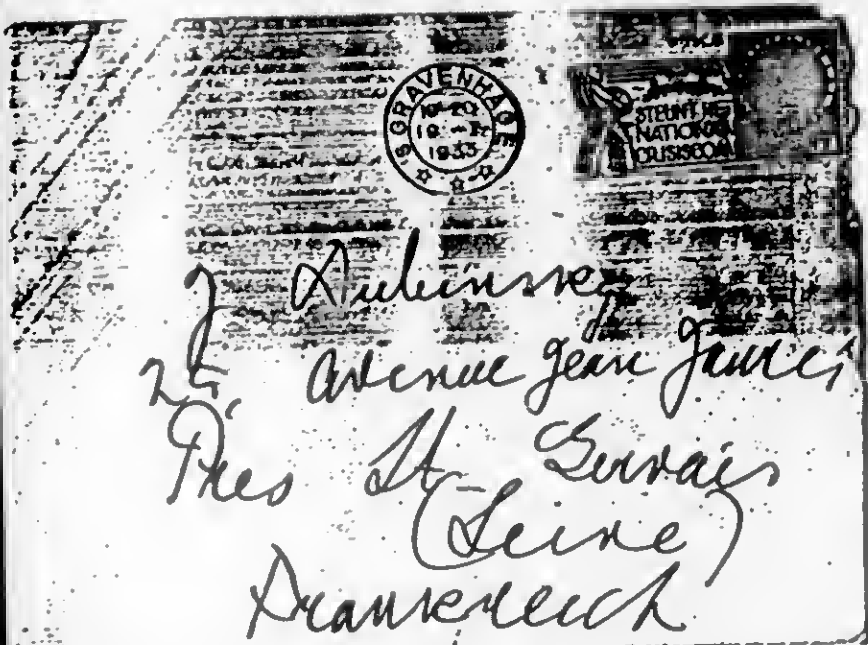 'S GRAVENHAGE
19 - 
1933
STEUNT HET
NATIONAAL
CRISISCOM
J.
25, Avenue Jean Jaurès
Prés St. Gervais
(Seine)
Frankreich